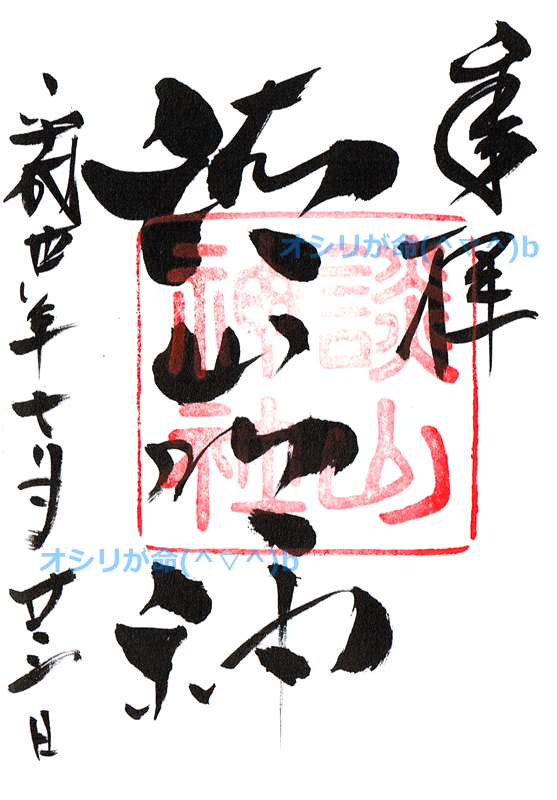 奉拝
談山
神社
談山明神
年十月廿二日
オシリが命(^▽^)b
オシリが命(^▽^)b